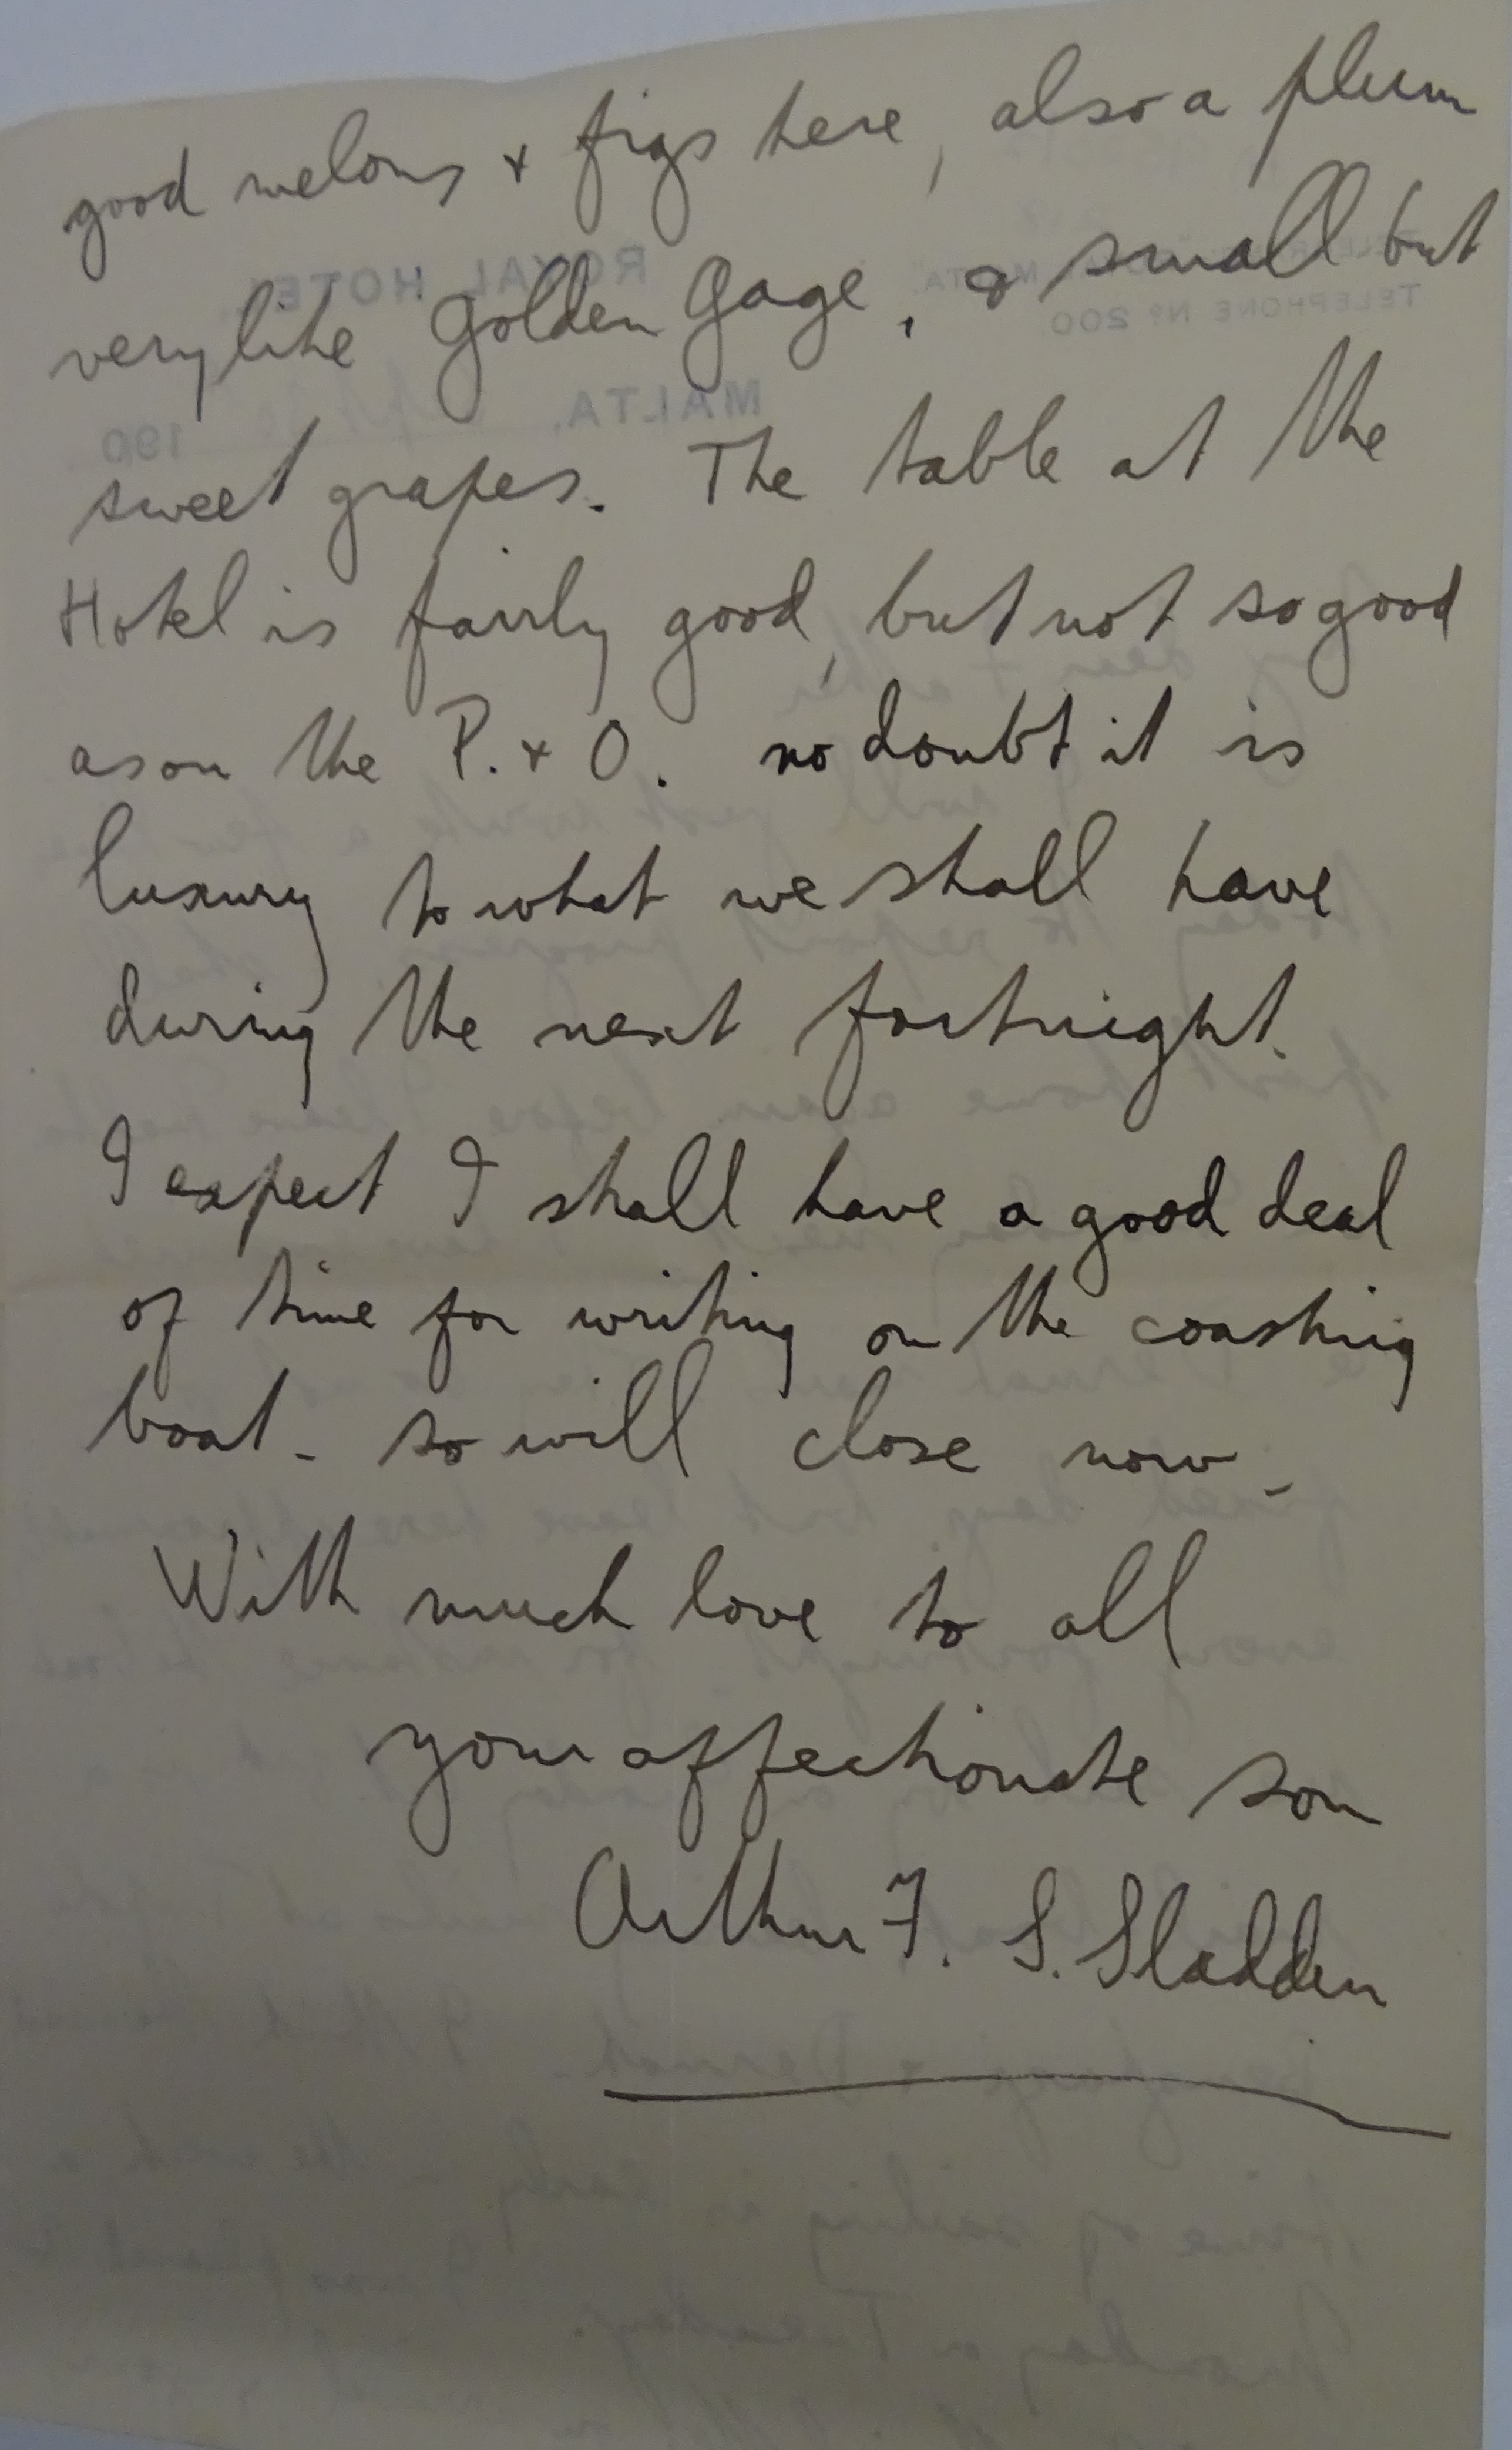 good melons & figs here, also a plum
very like Golden Gage, & small but
sweet grapes. The table at the
Hotel is fairly good, but not so good
as on the P. & O. no doubt it is
luxury to what we shall have
during the next fortnight.
I expect I shall have a good deal
of time for writing on the coasting
boat - so will close now -
With much love to all
your affectionate son
Arthur F. S. Sladden